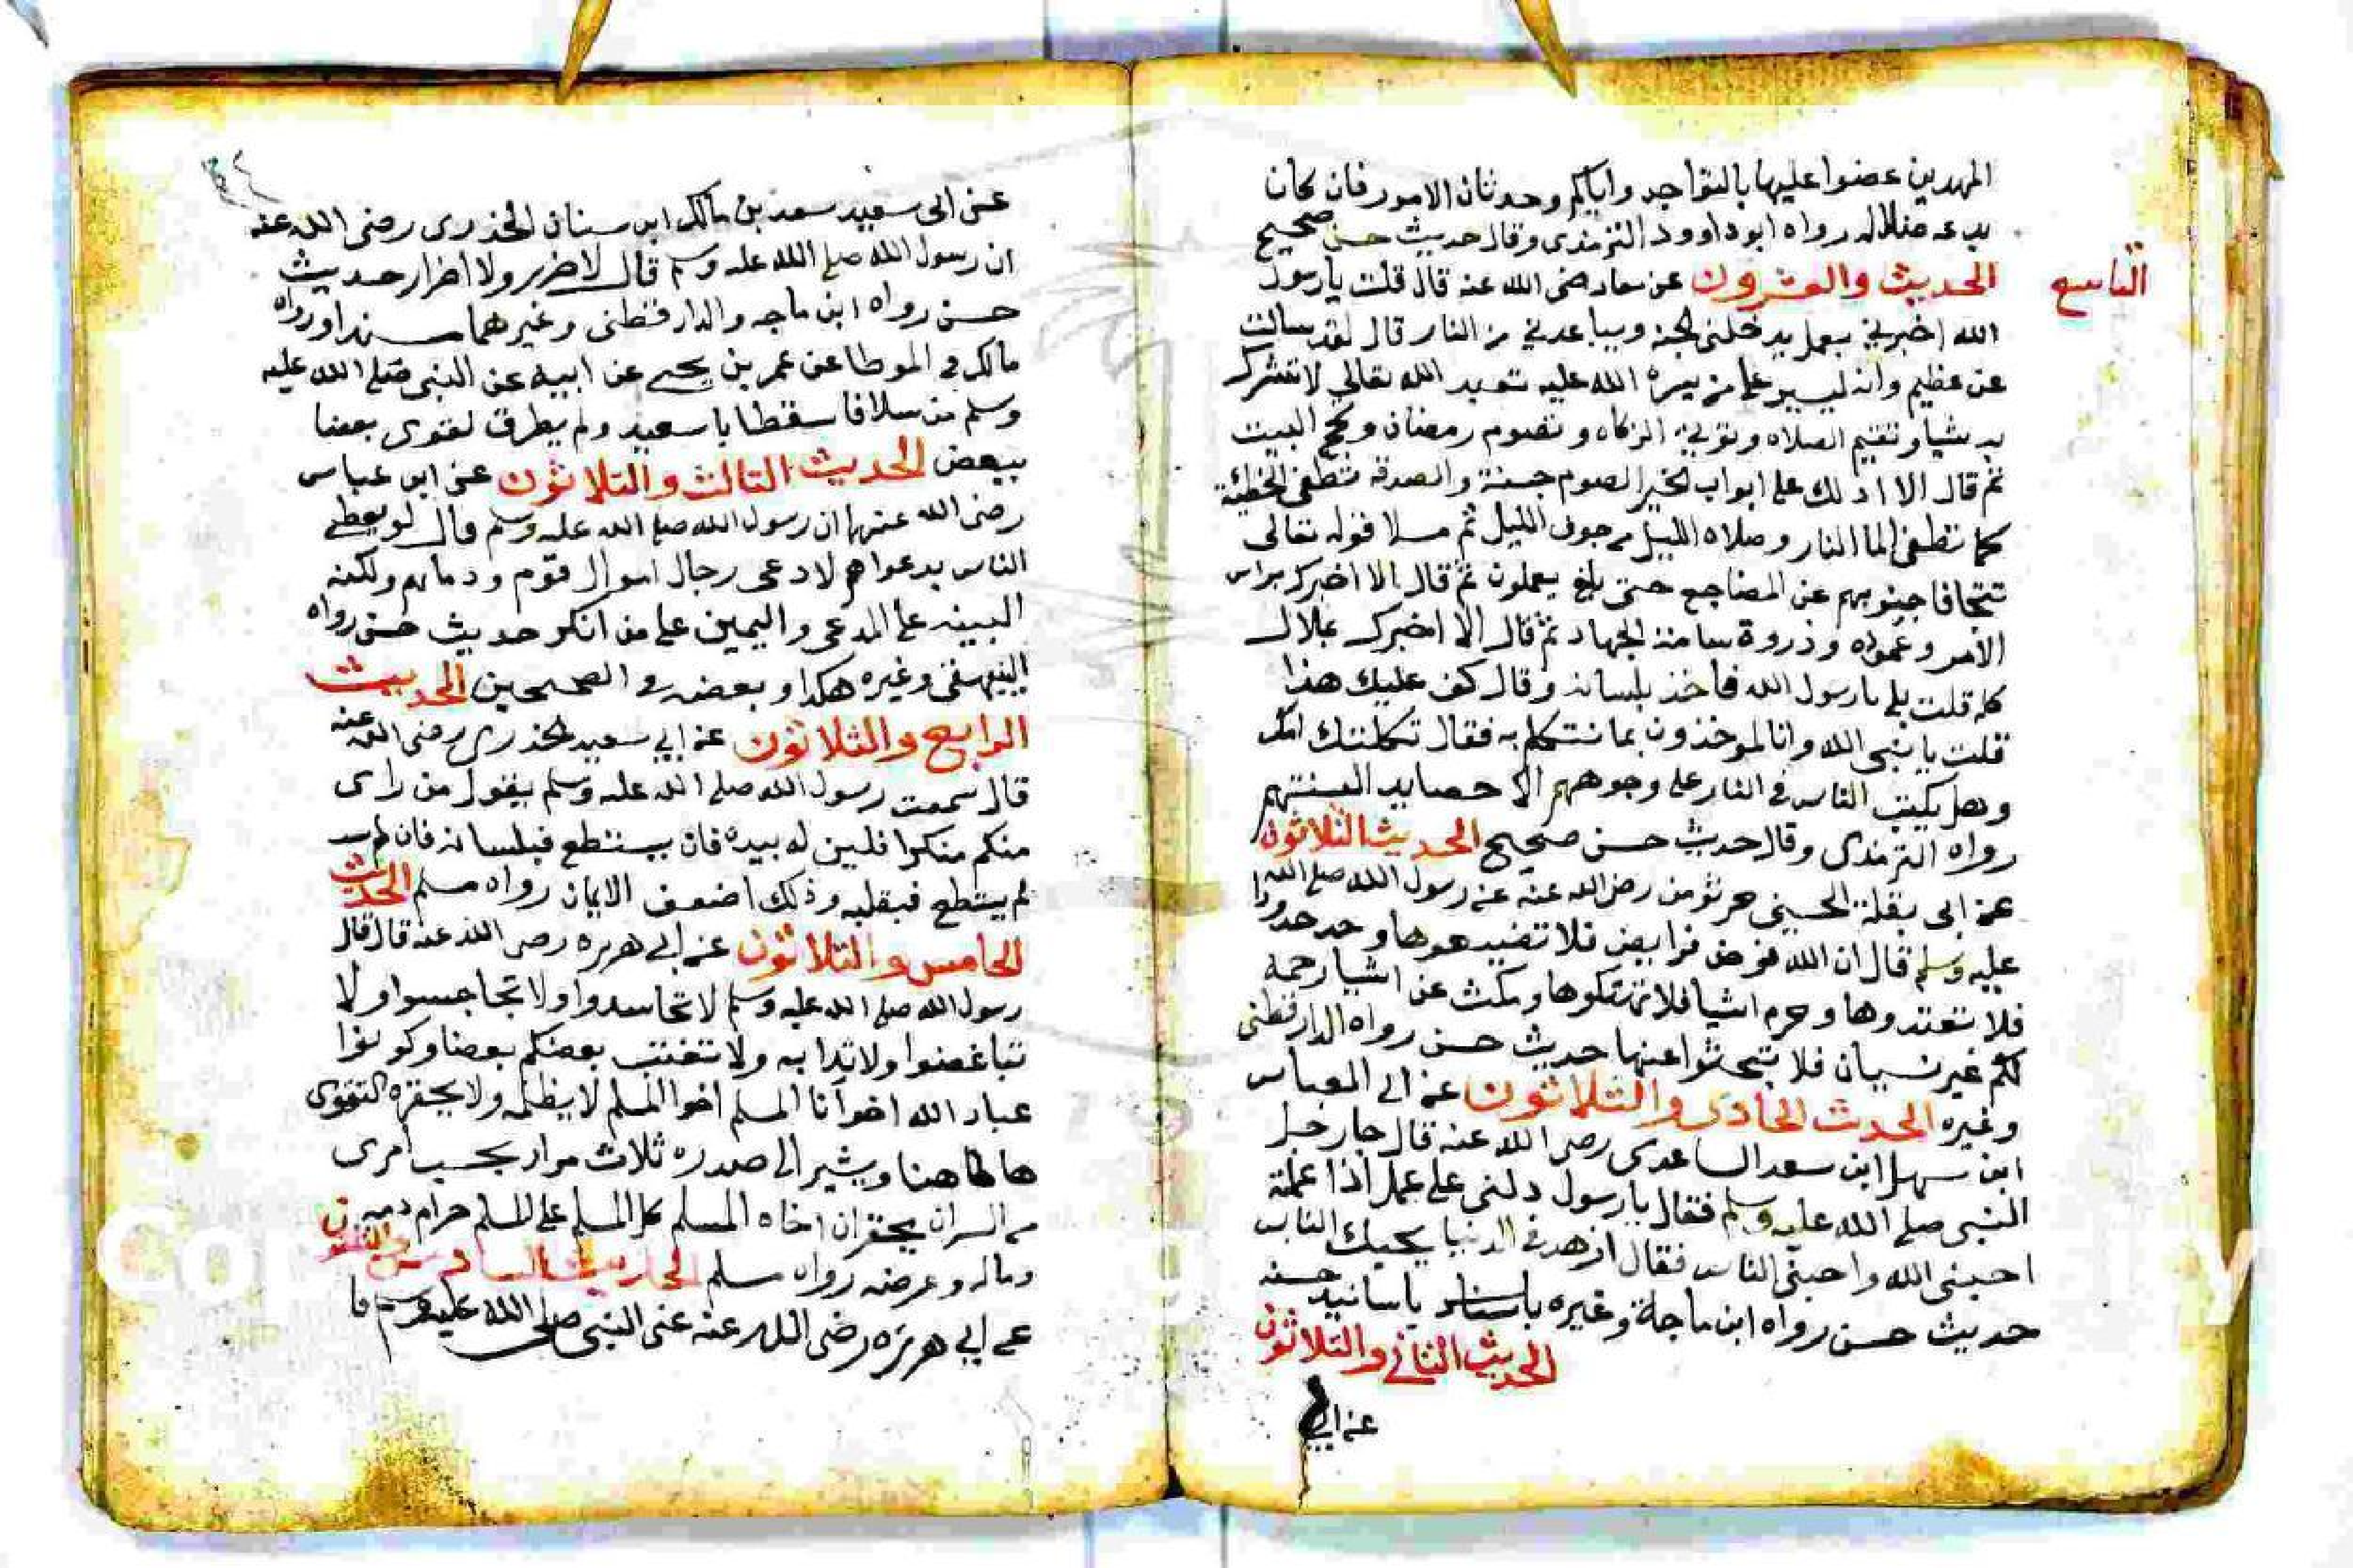 المهديين عضوا عليها بالنواجد واياكم وحدثات الامور فان كان
بدعه ضلاله رواه ابوداوود الترمذي وقال حديث حسن صحيح
التاسع
الحديث والعشرون عن معاد رضى الله عنه قال قلت يارسول
الله اخبرني بعمل يدخلني الجنه ويباعدني من النار قال لقد سالت
عن عظيم وانه ليسير على من يسره الله عليه تعبد الله تعالي لا تشرك
به شيا وتقيم الصلاه وتؤتي الزكاه وتصوم رمضان وتحج البيت
ثم قال الا ادلك على ابواب الخير الصوم جنة والصدقه تطفى الخطيئة
كما تطفى الما النار وصلاه الليل من جوف الليل ثم تلا قوله تعالى
تتجافا جنوبهم عن المضاجع حتى بلغ يعملون ثم قال الا اخبرك براس
الامر وعموده وذروة سنامه الجهاد ثم قال الا اخبرك بملاك
كله قلت بلى يارسول الله فاخذ بلسانه وقال كف عليك هذا
قلت يا نبى الله وانا لموخذون بما نتكلم به فقال ثكلتك امك
وهل يكب الناس في النار على وجوههم الا حصايد السنتهم
رواه الترمذى وقال حديث حسن صحيح الحديث الثلاثون
عن ابى بقلة الحسينى جرثومن رضى الله عنه عن رسول الله صلى الله
عليه وسلم قال ان الله فرض فرايض فلا تضيعوها وحد حدودا
فلا تعتدوها وحرم اشيا فلا تنتهكوها وسكت عن اشيا رحمة
لكم غير نسيان فلا تبحثوا عنها حديث حسن رواه الدارقطنى
وغيره الحدث الحادى والثلاثون عن ابى العباس
ابن سهل ابن سعد الساعدى رضى الله عنه قال جا رجل
النبى صلى الله عليه وسلم فقال يا رسول دلنى على عمل اذا عملته
احبنى الله واحبنى الناس فقال ازهد في الدنيا يحبك الناس
حديث حسن رواه ابن ماجة وغيره باسانيد حسنه
الحديث الثاني والثلاثون
عن ابي
عن ابى سعيد سعد بن مالك ابن سنان الخذرى رضى الله عنه
ان رسول الله صلى الله عليه وسلم قال لاضرر ولا اضرار حديث
حسن رواه ابن ماجه والدارقطنى وغيرهما مسندا ورواه
مالك في الموطا عن عمر بن يحيى عن ابيه عن النبى صلى الله عليه
وسلم مرسلا فاسقطا باسعيد ولم يطرق لقوى بعضا
ببعض الحديث الثالث والثلاثون عن ابن عباس
رضى الله عنهما ان رسول الله صلى الله عليه وسلم قال لو يعطى
الناس بدعواهم لادعى رجال اموال قوم ودماهم ولكنه
البينه على المدعى واليمين على من انكر حديث حسن رواه
البيهقى وغيره هكدا وبعضه في الصحيحين الحديث
الرابع والثلاثون عن ابي سعيد الخذرى رضى الله عنه
قال سمعت رسول الله صلى الله عليه وسلم يقول من راى
منكم منكرا فليزله بيده فان يستطع فبلسانه فان لم
لم يستطع فبقلبه وذلك اضعف الايمان رواه مسلم الحدث
الخامس والثلاثون عن ابي هريره رضى الله عنه قال قال
رسول الله صلى الله عليه وسلم لا تحاسدوا ولا تجاجسوا ولا
تباغضوا ولا تدابه ولا تغتب بعضكم بعضا وكونوا
عباد الله اخوآنا المسلم اخوا المسلم لا يظلمه ولا يحقره التقوى
هاهنا ويشير الى صدره ثلاث مرار بحسب امرى
من السر ان يحقر ان اخاه المسلم كل المسلم على المسلم حرام دمه
وماله وعرضه رواه مسلم الحديث السادس والثلاثون
عن ابي هريره رضى الله عنه عنى النبى صلى الله عليه وسلم قا